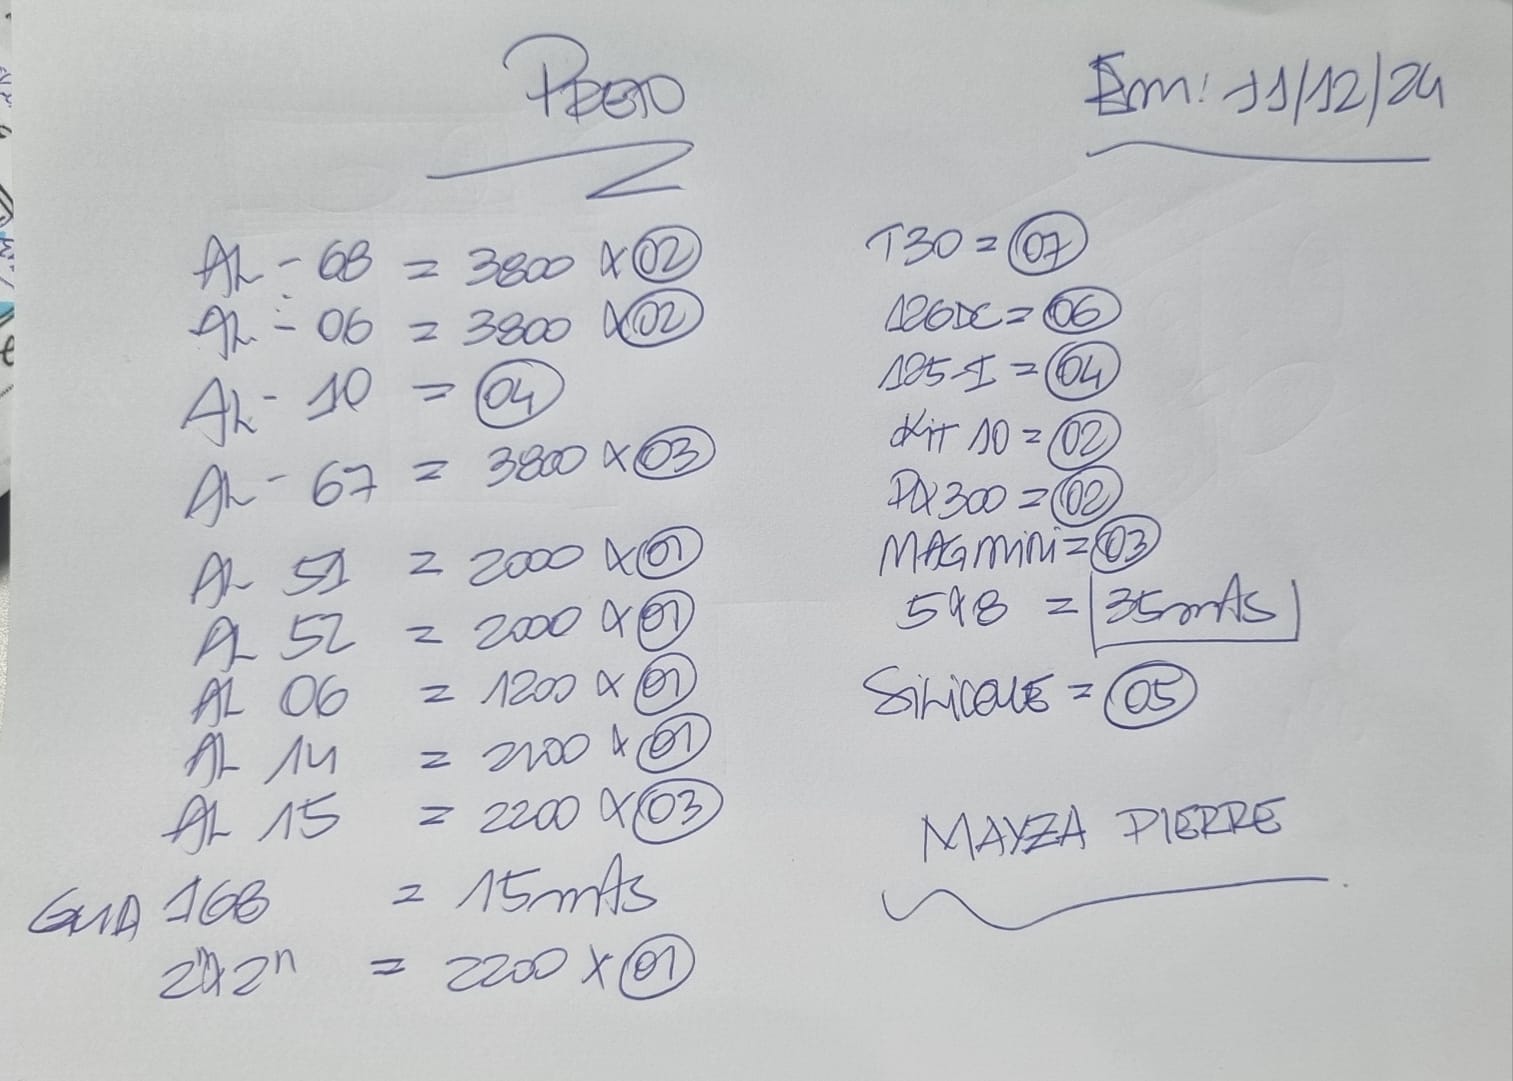 Preto
Em: 11/12/24
AL - 68 = 3800 x 02
AL - 06 = 3800 x 02
AL - 10 = 04
AL - 67 = 3800 x 03
AL 51 = 2000 x 01
AL 52 = 2000 x 01
AL 06 = 1200 x 01
AL 14 = 2200 x 01
AL 15 = 2200 x 03
GUIA 168 = 15mts
2"x2" = 2200 x 01
T30 = 07
126DC = 06
125-I = 04
Kit 10 = 02
PX300 = 02
MAG mini = 03
5x8 = 35mts
SILICONE = 05
MAYZA PIERRE